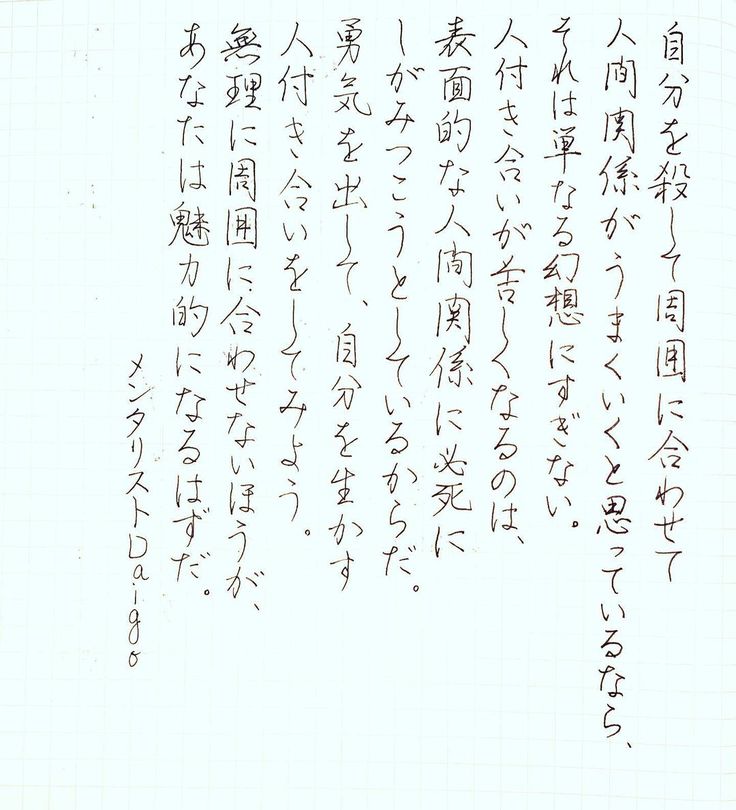 自分を殺して周囲に合わせて
人間関係がうまくいくと思っているなら、
それは単なる幻想にすぎない。
人付き合いが苦しくなるのは、
表面的な人間関係に必死に
しがみつこうとしているからだ。
勇気を出して、自分を生かす
人付き合いをしてみよう。
無理に周囲に合わせないほうが、
あなたは魅力的になるはずだ。
メンタリストDaigo